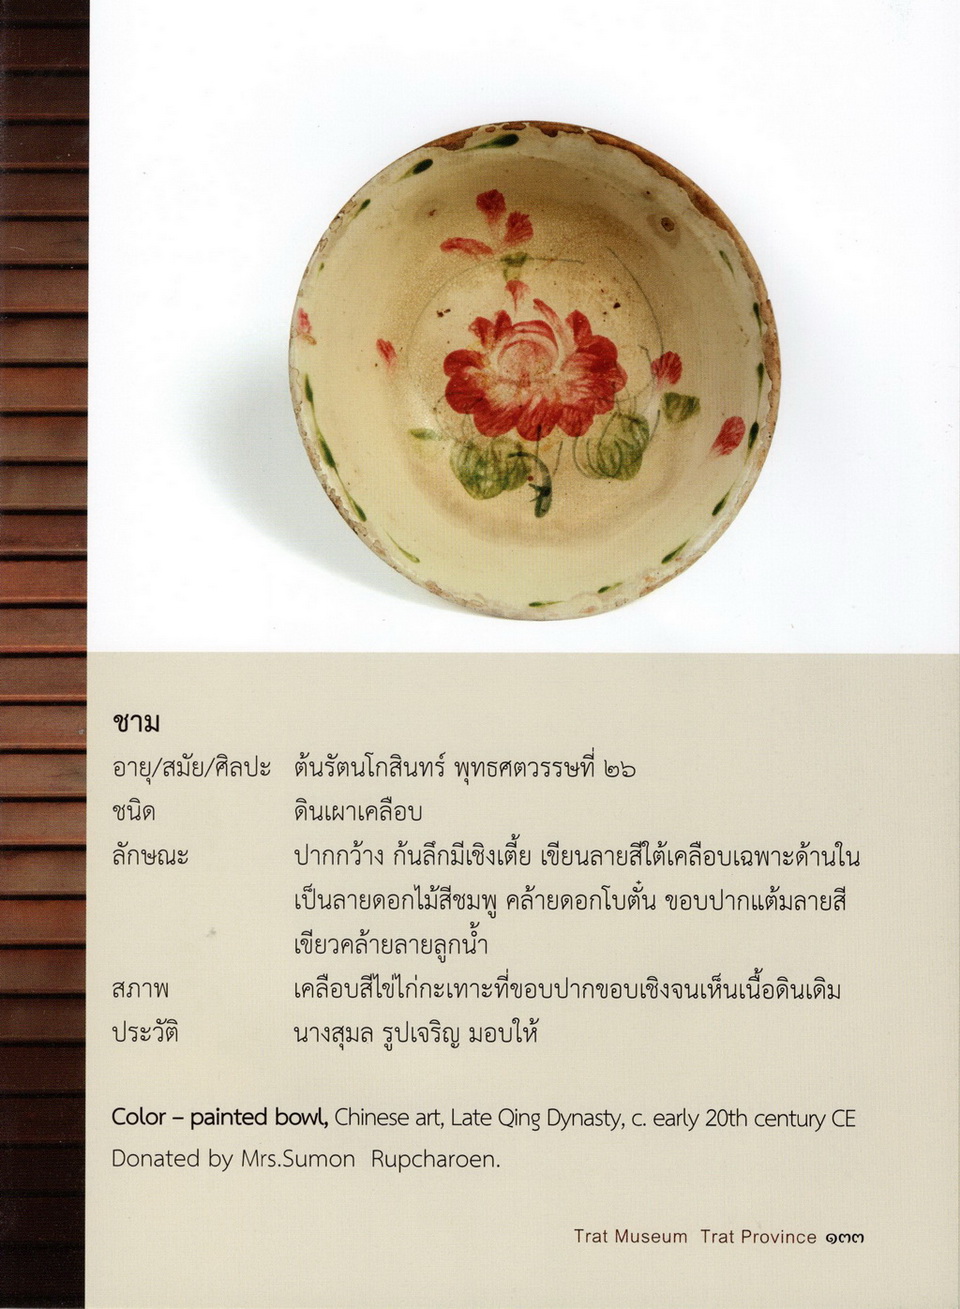 ชาม
อายุ/สมัย/ศิลปะ ต้นรัตนโกสินทร์ พุทธศตวรรษที่ ๒๖
ชนิด ดินเผาเคลือบ
ลักษณะ ปากกว้าง ก้นลึกมีเชิงเตี้ย เขียนลายสีใต้เคลือบเฉพาะด้านใน
เป็นลายดอกไม้สีชมพู คล้ายดอกโบตั๋น ขอบปากแต้มลายสี
เขียวคล้ายลายลูกน้ำ
สภาพ เคลือบสีไข่ไก่กะเทาะที่ขอบปากขอบเชิงจนเห็นเนื้อดินเดิม
ประวัติ นางสุมล รูปเจริญ มอบให้
Color – painted bowl, Chinese art, Late Qing Dynasty, c. early 20th century CE
Donated by Mrs.Sumon Rupcharoen.
Trat Museum Trat Province ๑๓๓